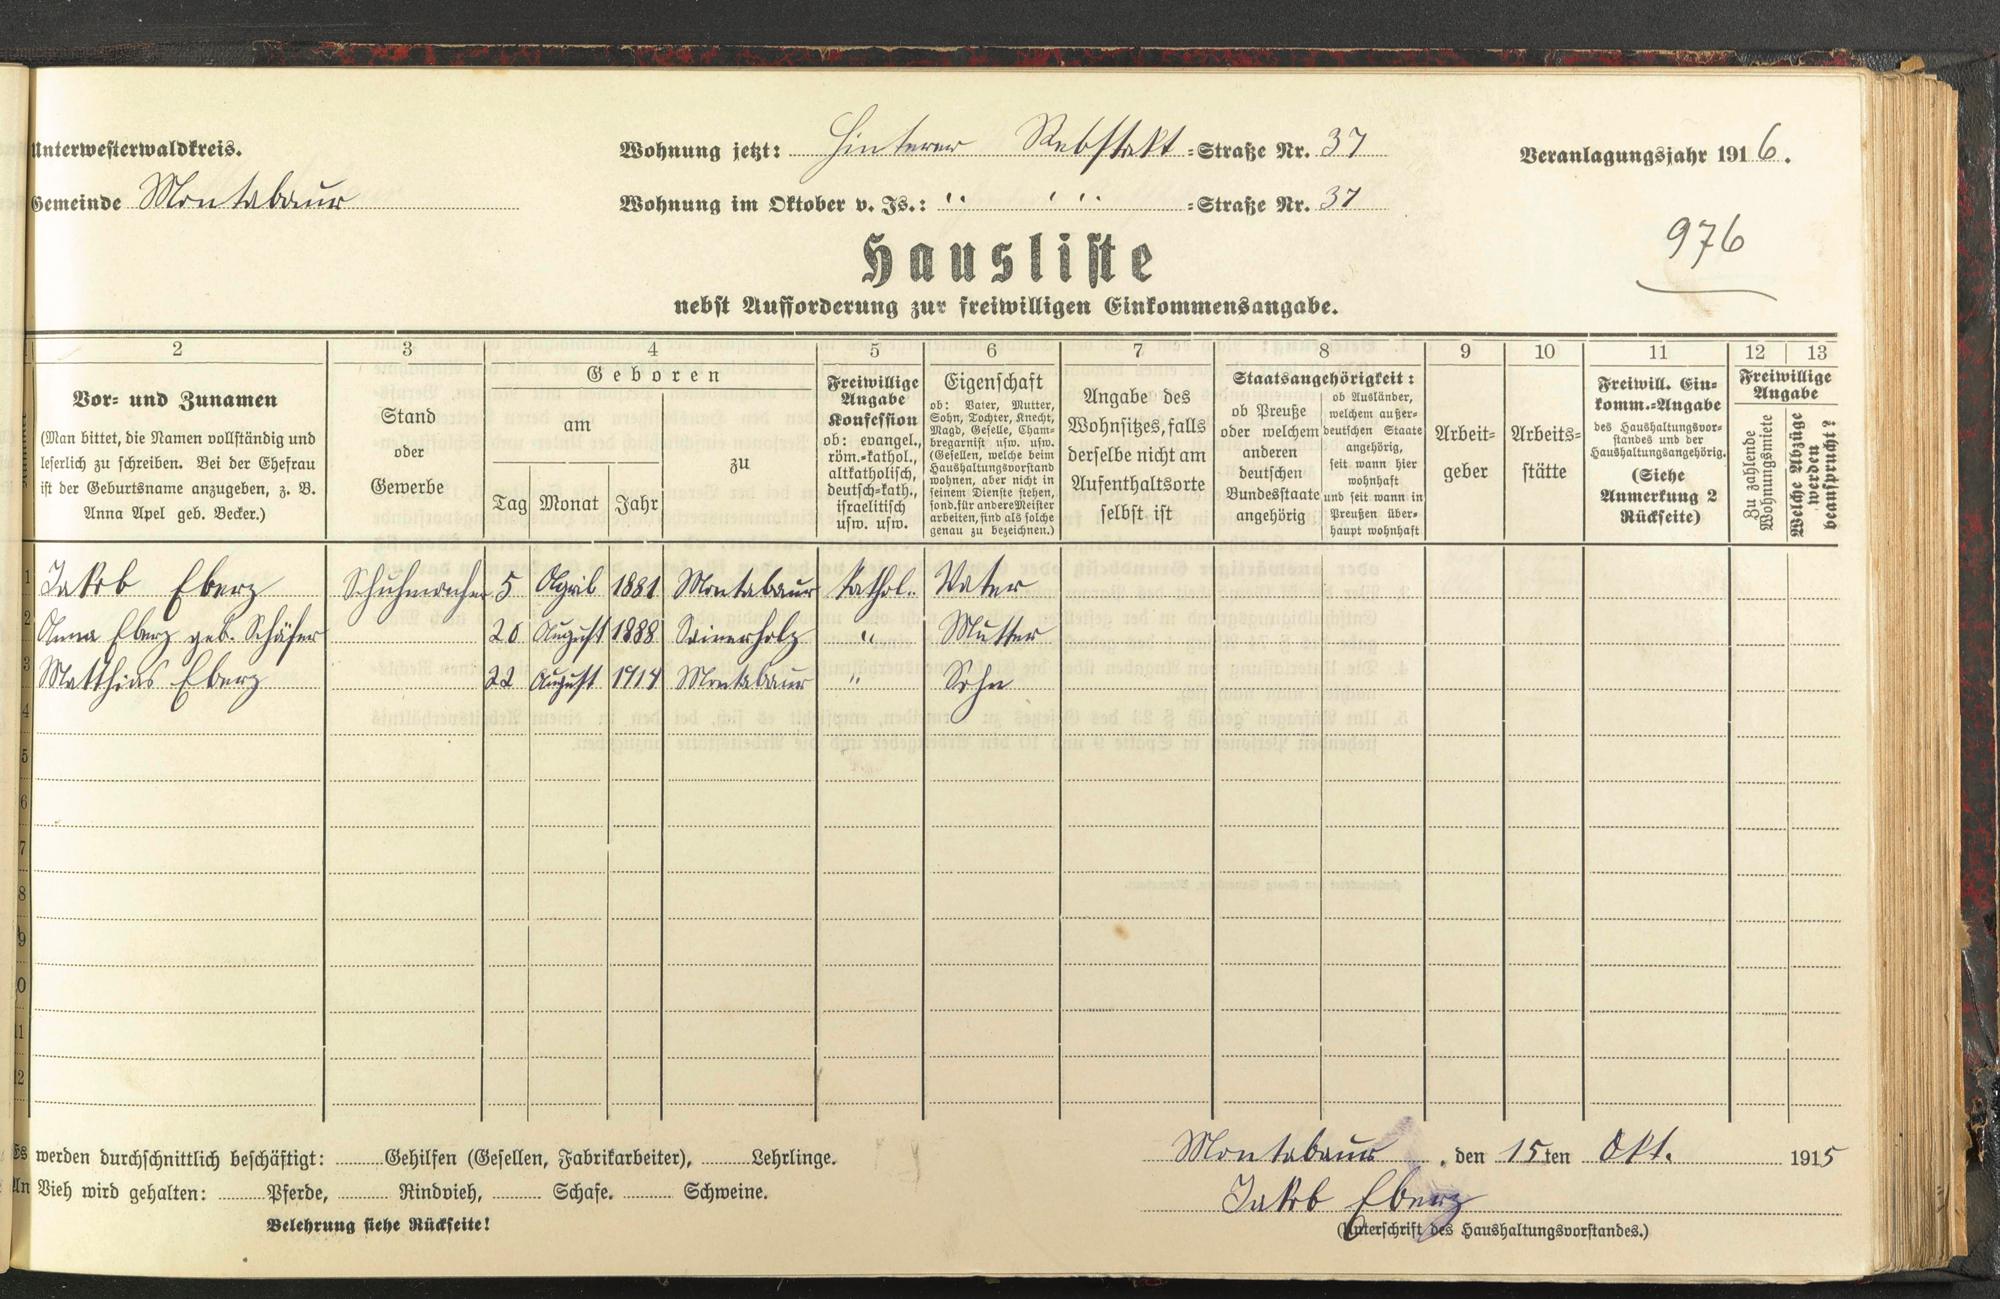 Unterwesterwaldkreis.
Wohnung jetzt: Hinterer Rebstokt =Straße Nr. 37
Veranlagungsjahr 1916.
Gemeinde Montabaur
Wohnung im Oktober v. Js.: " " " =Straße Nr. 37
976
Hausliste
nebst Aufforderung zur freiwilligen Einkommensangabe.
2 3 4 5 6 7 8 9 10 11 12 13
Vor- und Zunamen
(Man bittet, die Namen vollständig und
leserlich zu schreiben. Bei der Ehefrau
ist der Geburtsname anzugeben, z. B.
Anna Apel geb. Becker.)
Stand
oder
Gewerbe
Geboren
am
Tag Monat Jahr
zu
Freiwillige
Angabe
Konfession
ob: evangel.,
röm.-kathol.,
altkatholisch,
deutsch-kath.,
israelitisch
usw. usw.
Eigenschaft
ob: Vater, Mutter,
Sohn, Tochter, Knecht,
Magd, Geselle, Cham-
bregarnist usw. usw.
(Gesellen, welche beim
Haushaltungsvorstand
wohnen, aber nicht in
seinem Dienste stehen,
sond. für andere Meister
arbeiten, sind als solche
genau zu bezeichnen.)
Angabe des
Wohnsitzes, falls
derselbe nicht am
Aufenthaltsorte
selbst ist
Staatsangehörigkeit:
ob Preuße
oder welchem
anderen
deutschen
Bundesstaate
angehörig
ob Ausländer,
welchem außer-
deutschen Staate
angehörig,
seit wann hier
wohnhaft
und seit wann in
Preußen über-
haupt wohnhaft
Arbeit-
geber
Arbeits-
stätte
Freiwill. Ein-
komm.-Angabe
des Haushaltungsvor-
standes und der
Haushaltungsangehörig.
(Siehe
Anmerkung 2
Rückseite)
Freiwillige
Angabe
Zu zahlende
Wohnungsmiete
Welche Abzüge
werden
beansprucht?
1 Jakob Eberz Schuhmacher 5 April 1881 Montabaur kathol. Vater
2 Anna Eberz geb. Schäfer 20 August 1888 Sainerholz " Mutter
3 Matthias Eberz 22 August 1914 Montabaur " Sohn
4
5
6
7
8
9
10
11
12
Es werden durchschnittlich beschäftigt: Gehilfen (Gesellen, Fabrikarbeiter), Lehrlinge.
An Vieh wird gehalten: Pferde, Rindvieh, Schafe. Schweine.
Belehrung siehe Rückseite!
Montabaur, den 15ten Okt. 1915
Jakob Eberz
(Unterschrift des Haushaltungsvorstandes.)